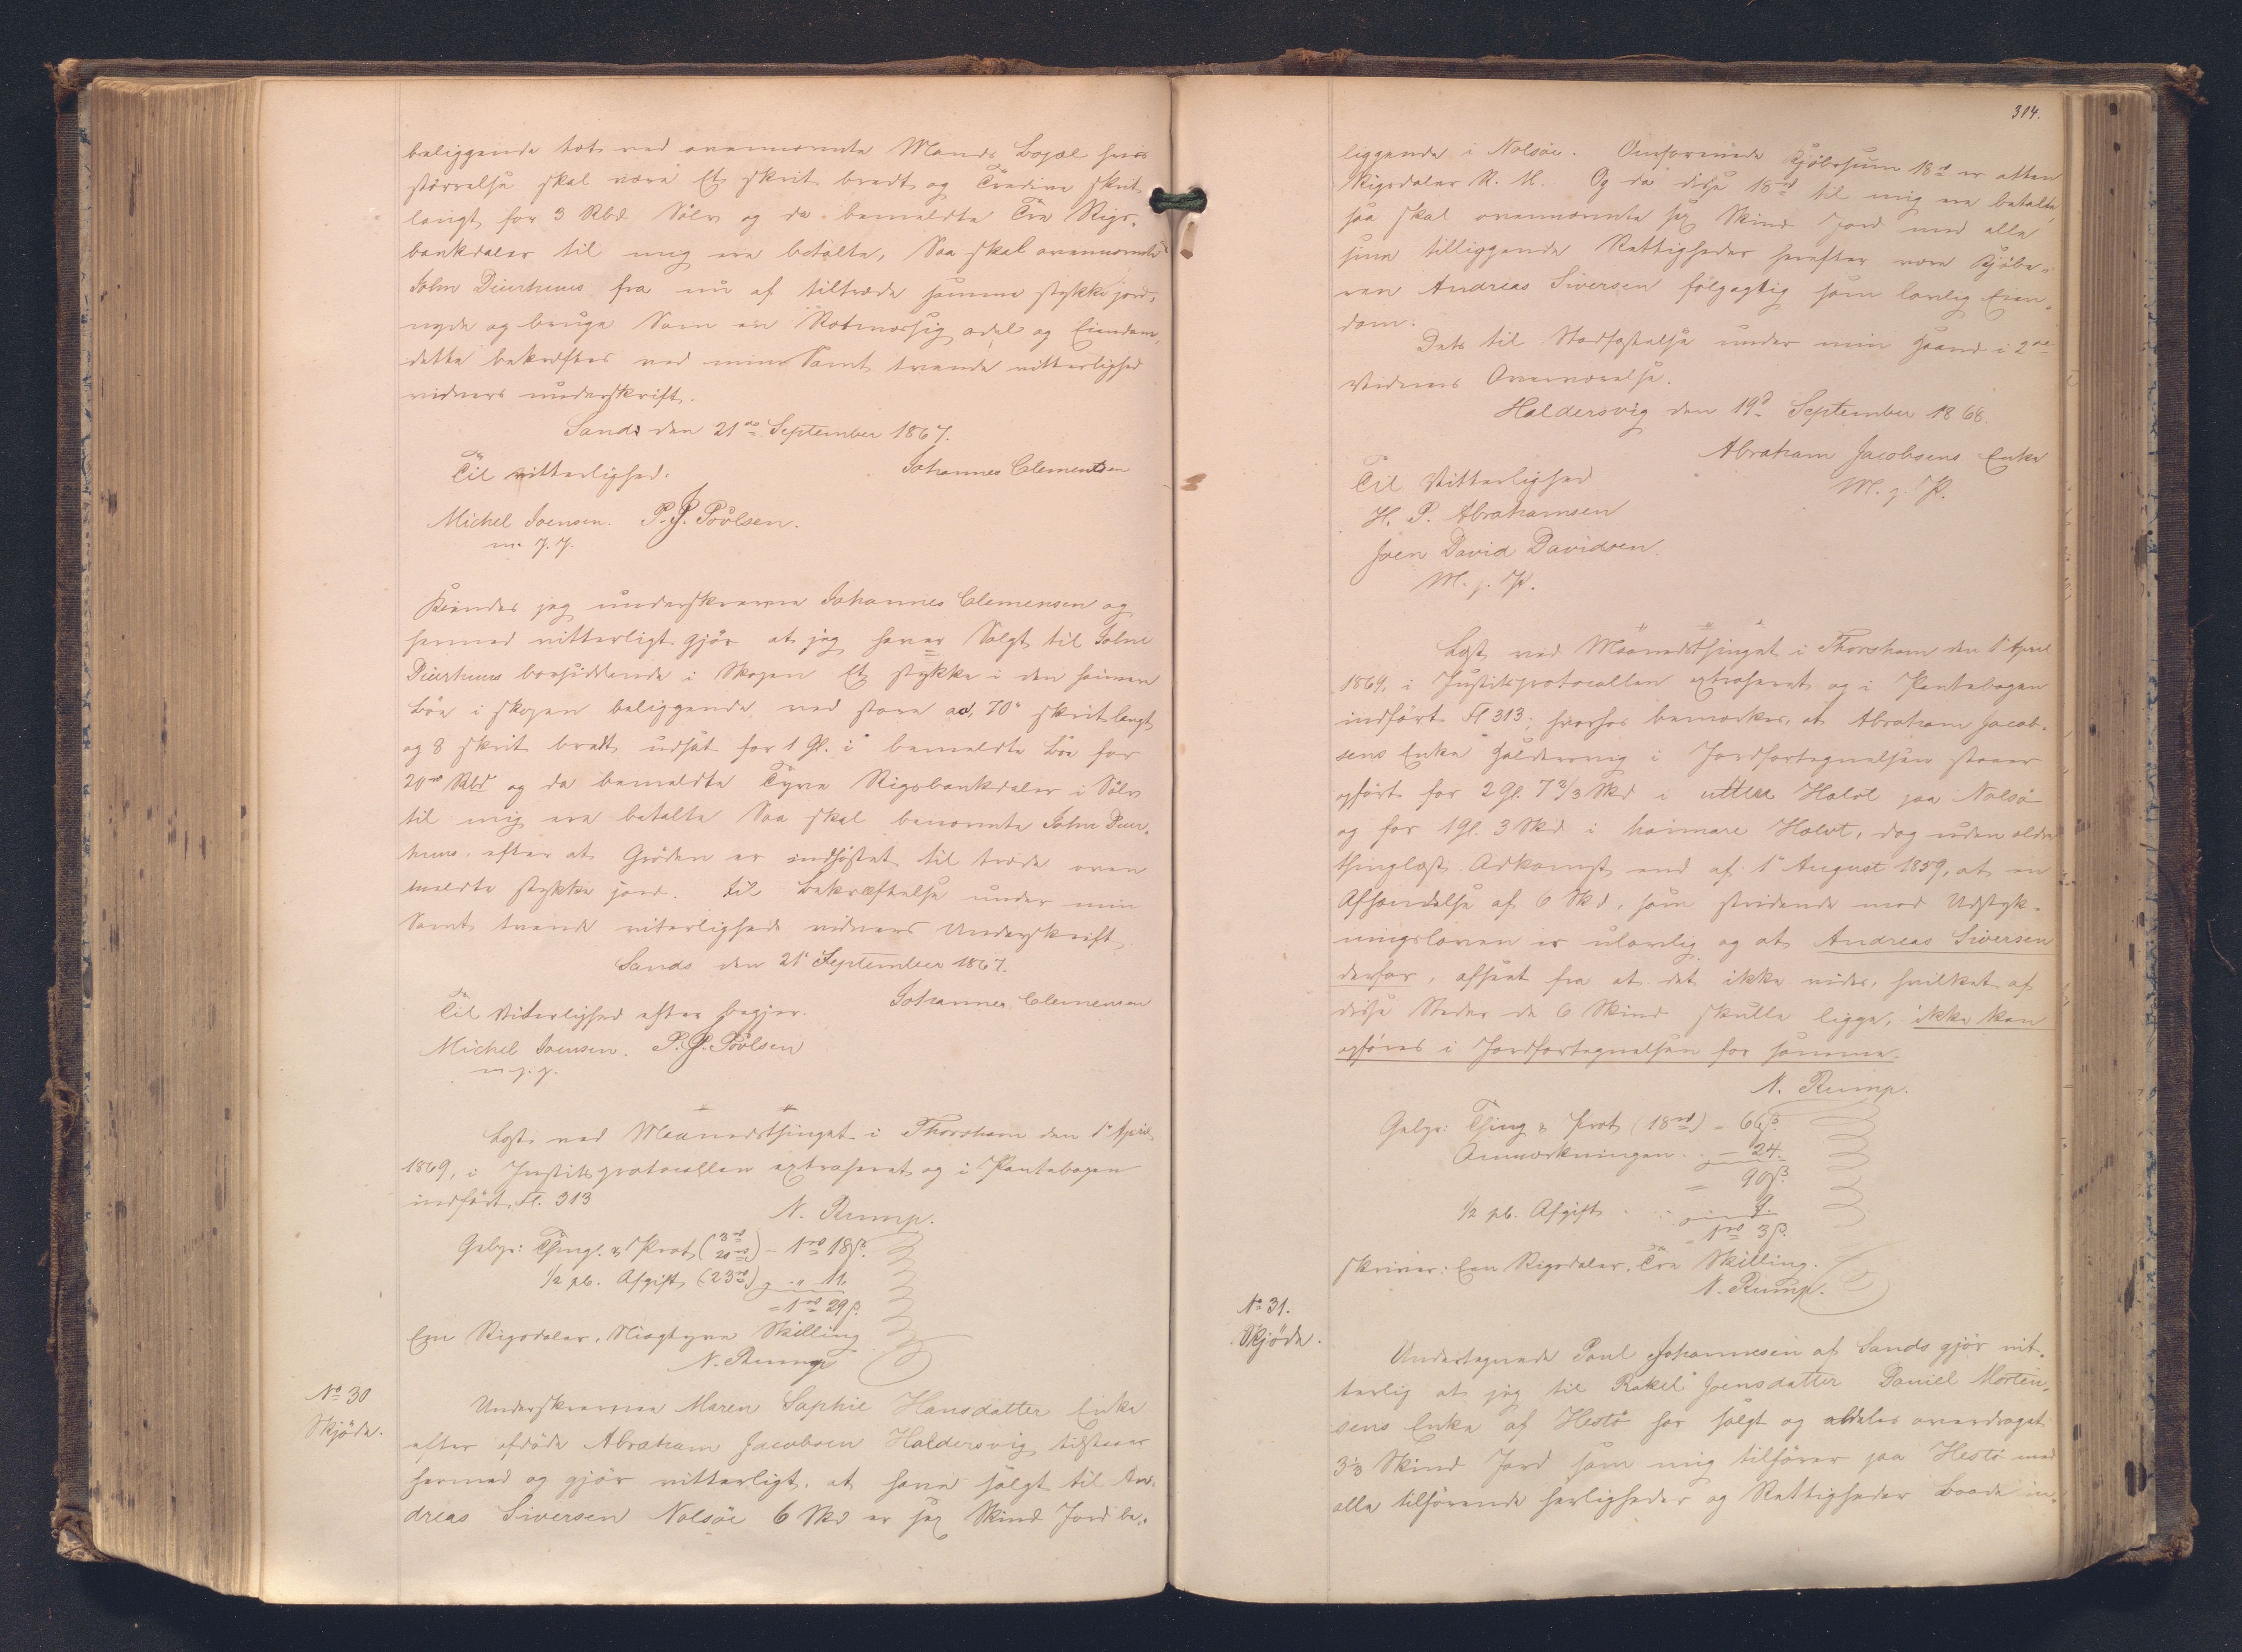 beliggende tæt ved ovennævnte Mands Bopæl hvis
störrelse skal være Et skrit bredt og Tredive skrit
langt for 3 Rbd Sölv og da bemeldte Tre Rigs-
bankdaler til mig ere betalte, Saa skal ovennævnte
John Diurhuus fra nu af tiltræde samme stykke jord,
nyde og bruge Som en Retmæssig odel og Eiendom,
dette bekræftes ved min Samt tvende vitterlighed
vidners underskrift.
Sands den 21de September 1867.
Til vitterlighed. Johannes Clementsen
Michel Joensen. P. J. Poulsen.
m. f. P.
Kiendes jeg underskrevne Johannes Clemensen og
hermed vitterligt gjör at jeg haver Solgt til John
Diurhuus boesiddende i Skopen Et stykke i den heimen
Böe i skopen beliggende ved store aa, 70" skrit langt
og 8 skrit bredt udsat for 1 Gl. i bemeldte Böe for
20ve Rbd og da bemeldte Tyve Rigsbankdaler i Sölv
til mig ere betalte Saa skal benævnte John Diur-
huus, efter at Gröden er indhöstet til træde oven
meldte stykke jord. til Bekræftelse under min
Samt tvende viterligheds vidners Underskrift
Sands den 21' September 1867.
Til Viterlighed efter begjer. Johannes Clemensen
Michel Joensen. P. J. Poulsen
m. f. p.
Læst ved Maanedsthinget i Thorshavn den 1' April
1869, i Justitsprotocollen extraheret og i Pantebogen
indfört Fl. 313
N. Rump.
Gebyr: Thingl. & Prot (3rd 20rd) - 1rd 18ß.
½ pb. Afgift (23rd) " " 11.
= 1rd 29ß.
Een Rigsdaler, Niogtyve Skilling
N. Rump
No 30
Skjöde.
Underskrevne Maren Sophie Hansdatter Enke
efter afdöde Abraham Jacobsen Haldersvig tilstaaer
hermed og gjör vitterligt, at have solgt til An-
dreas Siversen Nolsöe 6 Skd er sex Skind Jord be-
314.
liggende i Nolsöe. Omforenede Kjöbesum 18rd er atten
Rigsdaler R. M. Og da disse 18rd til mig ere betalte,
saa skal ovennævnte sex Skind Jord med alle
sine tilliggende Rettigheder herefter være Kjöbe-
ren Andreas Siversen fölgagtig som lovlig Eien-
dom.
Dets til Stadfæstelse under min Haand i 2de
Vidners Overværelse.
Haldersvig den 19d September 1868.
Abraham Jacobsens Enke
Til Vitterlighed M. f. P.
H. P. Abrahamsen
Joen David Davidsen.
M. f. P.
Læst ved Maanedsthinget i Thorshavn den 1' April
1869, i Justitsprotocollen extraheret og i Pantebogen
indfört Fl 313; hvorhos bemærkes, at Abraham Jacob-
sens Enke Haldersvig i Jordfortegnelsen staaer
opfört for 2 Gl. 7 2/3 Skd i uttere Halvt paa Nolsö
og for 1 Gl. 3 Skd i heimare Halvt, dog uden ældre
thinglæst Adkomst end af 1' August 1859, at en
Afhændelse af 6 Skd, som stridende mod Udstyk-
ningsloven er ulovlig og at Andreas Siversen
derfor, afseet fra at det ikke vides, hvilket af
disse Steder de 6 Skind skulle ligge, ikke kan
opföres i Jordfortegnelsen for samme.
N. Rump.
Gebyr: Thing & Prot (18rd) - 66ß.
Anmærkningen - 24.
= 90ß.
½ pb. Afgift 9.
1rd 3ß.
skriver: Een Rigsdaler, Tre Skilling.
N. Rump.
No 31.
Skjöde.
Undertegnede Poul Johannesen af Sands gjör vit-
terlig at jeg til Rakel Joensdatter Daniel Morten-
sens Enke af Hestö har solgt og aldeles overdraget
3⅓ Skind Jord som mig tilhörer paa Hestö med
alle tilhörende herligheder og Rettigheder baade in-